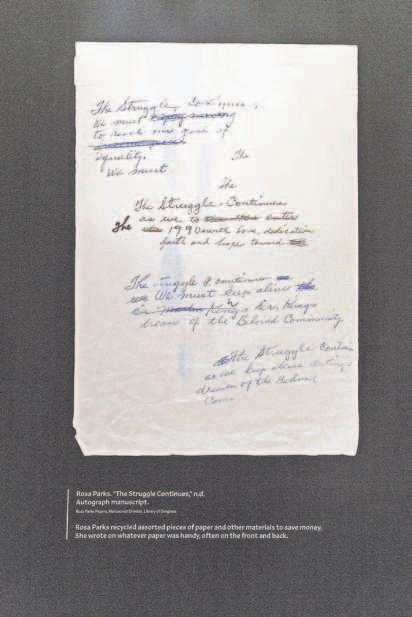 The Struggle Continues,
We must
to reach our goal of
equality.
The
We must
The
The Struggle Continues
as we to enter
The 1990s with love, dedication
faith and hope toward
The struggle continues
We must keep alive
King's Dr. King's
dream of the Beloved Community
The Struggle Contin
as we keep alive
dream of the Beloved
Com
Rosa Parks. "The Struggle Continues," n.d.
Autograph manuscript.
Rosa Parks Papers, Manuscript Division, Library of Congress
Rosa Parks recycled assorted pieces of paper and other materials to save money.
She wrote on whatever paper was handy, often on the front and back.